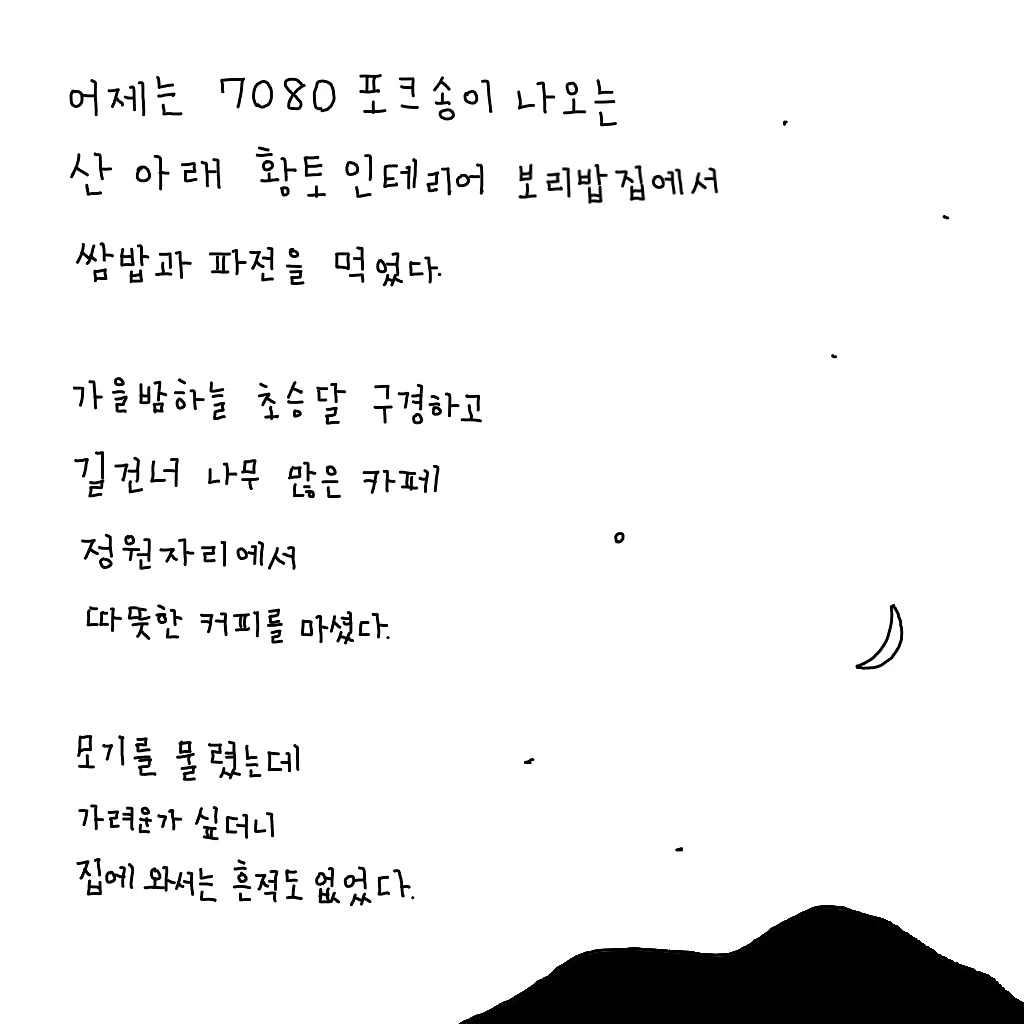 어제는 7080 포크송이 나오는
산 아래 황토 인테리어 보리밥집에서
쌈밥과 파전을 먹었다.
가을밤하늘 초승달 구경하고
길건너 나무 많은 카페
정원자리에서
따뜻한 커피를 마셨다.
모기를 물렸는데
가려운가 싶더니
집에 와서는 흔적도 없었다.